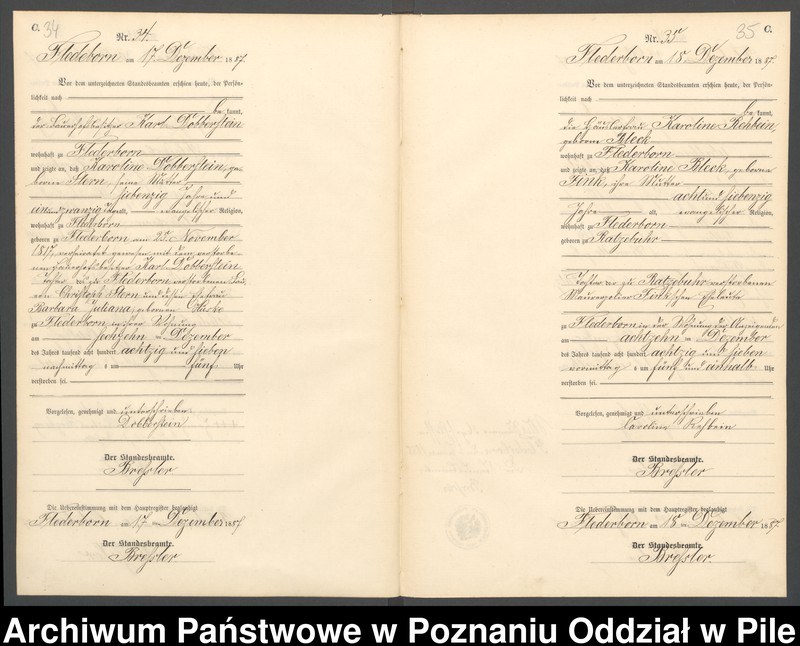 C. 34
Nr. 34.
Flederborn am 17. Dezember 1887
Vor dem unterzeichneten Standesbeamten erschien heute, der Persön-
lichkeit nach
be kannt,
der Bauerhofbesitzer Karl Dobberstein
wohnhaft zu Flederborn
und zeigte an, daß Karoline Dobberstein, ge-
borene Stern, seine Mutter
siebenzig Jahre und
einundzwanzig alt, evangelischer Religion,
wohnhaft zu Flederborn
geboren zu Flederborn am 25. November
1817, verheiratet gewesen mit dem verstorbe-
nen Bauerhofbesitzer Karl Dobberstein
Tochter der zu Flederborn verstorbenen
von Christoph Stern und dessen Ehefrau
Barbara Juliana, geborenen
zu Flederborn in ihrer Wohnung
am sechzehn ten Dezember
des Jahres tausend acht hundert achtzig und sieben
nachmittag s um fünf Uhr
verstorben sei.
Vorgelesen, genehmigt und unterschrieben
Dobberstein
Der Standesbeamte.
Bressler
Die Uebereinstimmung mit dem Hauptregister beglaubigt
Flederborn am 17 ten Dezember 1887
Der Standesbeamte.
Bressler
35 C.
Nr. 35
Flederborn am 18. Dezember 1887.
Vor dem unterzeichneten Standesbeamten erschien heute, der Persön-
lichkeit nach
be kannt,
die Häuslerfrau Karoline Rehbein,
geborene Bleck
wohnhaft zu Flederborn
und zeigte an, daß Karoline Bleck, geborene
Fink, ihre Mutter
acht und siebenzig
Jahre alt, evangelischer Religion,
wohnhaft zu Flederborn
geboren zu Ratzebuhr
Tochter der zu Ratzebuhr verstorbenen
Maurergeselle Fink'schen Eheleute
zu Flederborn in der Wohnung der Anzeigenden
am achtzehn ten Dezember
des Jahres tausend acht hundert achtzig und sieben
vormittag s um fünf und einhalb Uhr
verstorben sei.
Vorgelesen, genehmigt und unterschrieben
Carolina Rehbein
Der Standesbeamte.
Bressler
Die Uebereinstimmung mit dem Hauptregister beglaubigt
Flederborn am 18 ten Dezember 1887.
Der Standesbeamte.
Bressler.
Archiwum Państwowe w Poznaniu Oddział w Pile